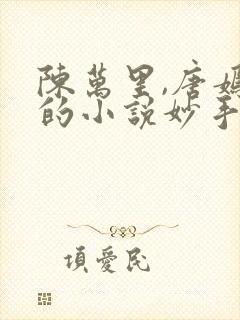 陳萬里,唐嫣
的小説妙手
項愛民